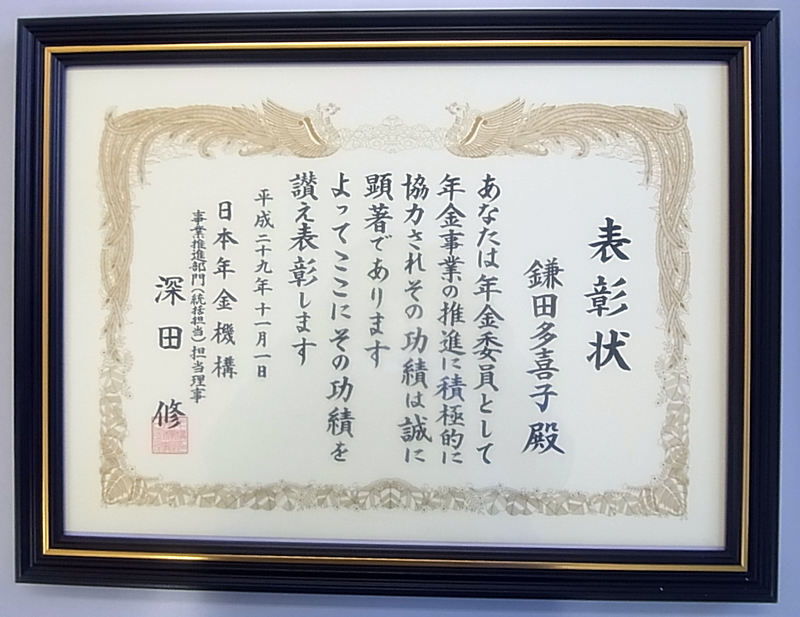 表彰状
鎌田多喜子殿
あなたは年金委員として
年金事業の推進に積極的に
協力されその功績は誠に
顕著であります
よってここにその功績を
讃え表彰します
平成二十九年十一月一日
日本年金機構
事業推進部門（統括担当）担当理事
深田 修